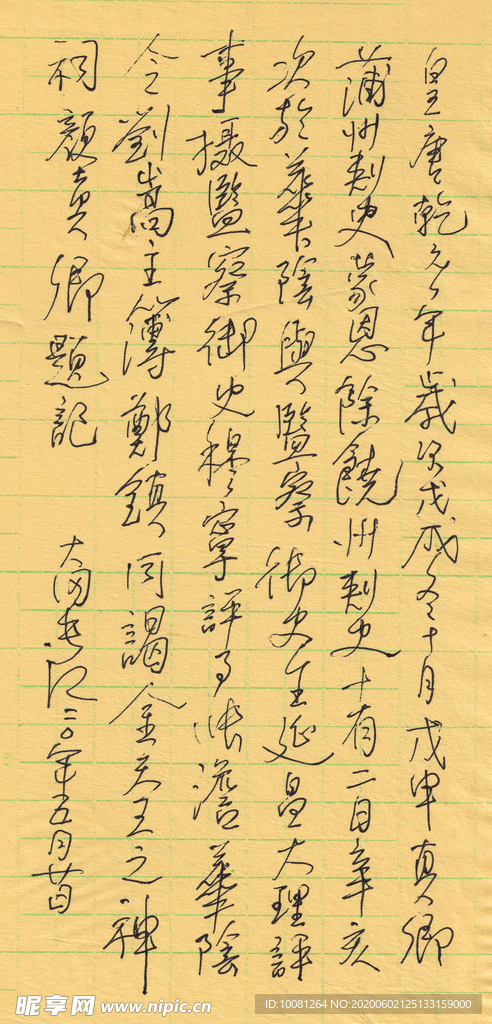 皇唐乾元元年歲次戊戌冬十月戊申真卿
蒲州刺史蒙恩除饒州刺史十有二日辛亥
次於華陰與監察御史王延昌大理評
事攝監察御史穆寧評事張澹華陰
令劉嵩主簿鄭鎮同謁金天王之神
祠顏真卿題記
二〇年五月廿日
昵享网 www.nipic.cn
ID:10081264 NO:20200602125133159000